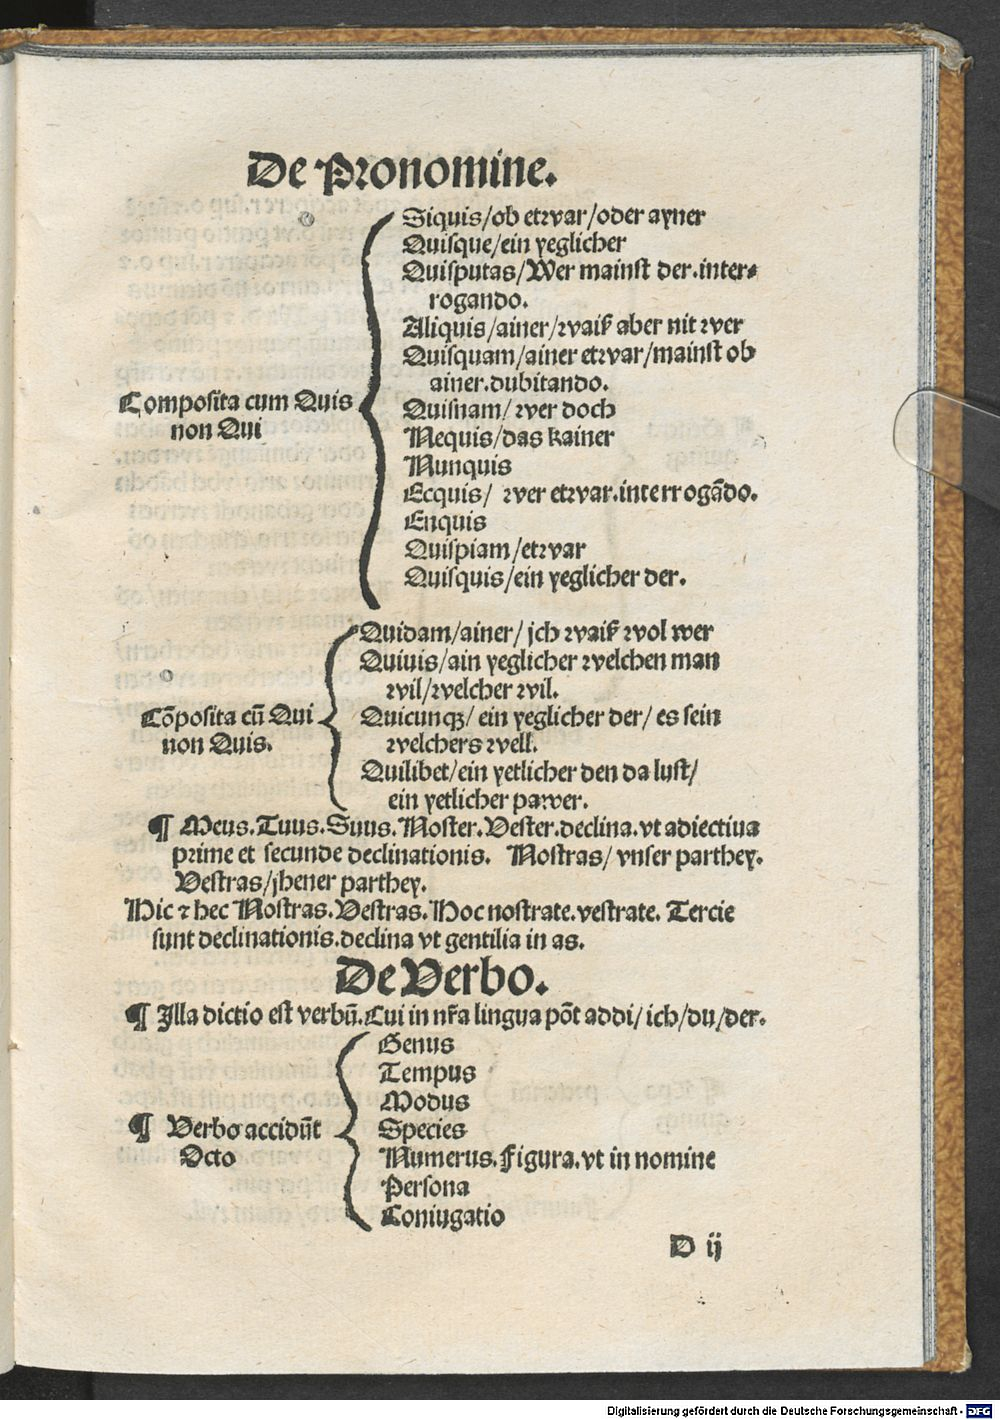 De Pronomine.
Siquis/ob etwar/oder ayner
Quisque/ein yeglicher
Quisputas/Wer mainst der.inter⸗
rogando.
Aliquis/ainer/waiß aber nit wer
Quisquam/ainer etwar/mainst ob
ainer.dubitando.
Composita cum Quis
non Qui
Quisnam/ wer doch
Nequis/das kainer
Nunquis
Ecquis/ wer etwar.interrogādo.
Enquis
Quispiam/etwar
Quisquis/ein yeglicher der.
Quidam/ainer/ jch waiß wol wer
Quiuis/ain yeglicher welchen man
wil/welcher wil.
Cōposita cū Qui
non Quis.
Quicunqꝫ/ ein yeglicher der/ es sein
welchers well.
Quilibet/ein yetlicher den da lust/
ein yetlicher pawer.
¶ Meus.Tuus.Suus.Noster.Vester.declina.vt adiectiua
prime et secunde declinationis. Nostras/ vnser parthey.
Vestras/jhener parthey.
Hic ⁊ hec Nostras.Vestras.Hoc nostrate.vestrate. Tercie
sunt declinationis.declina vt gentilia in as.
De Verbo.
¶ Illa dictio est verbū.Cui in nr̄a lingua pōt addi/ ich/du/der.
¶ Verbo accidūt
Octo
Genus
Tempus
Modus
Species
Numerus.Figura.vt in nomine
Persona
Coniugatio
D ij
Digitalisierung gefördert durch die Deutsche Forschungsgemeinschaft - DFG